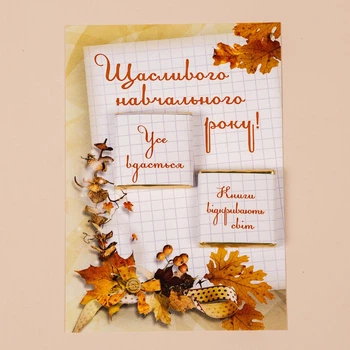 Щасливого
навчального
року!
Усе
вдасться
Книги
відкривають
світ